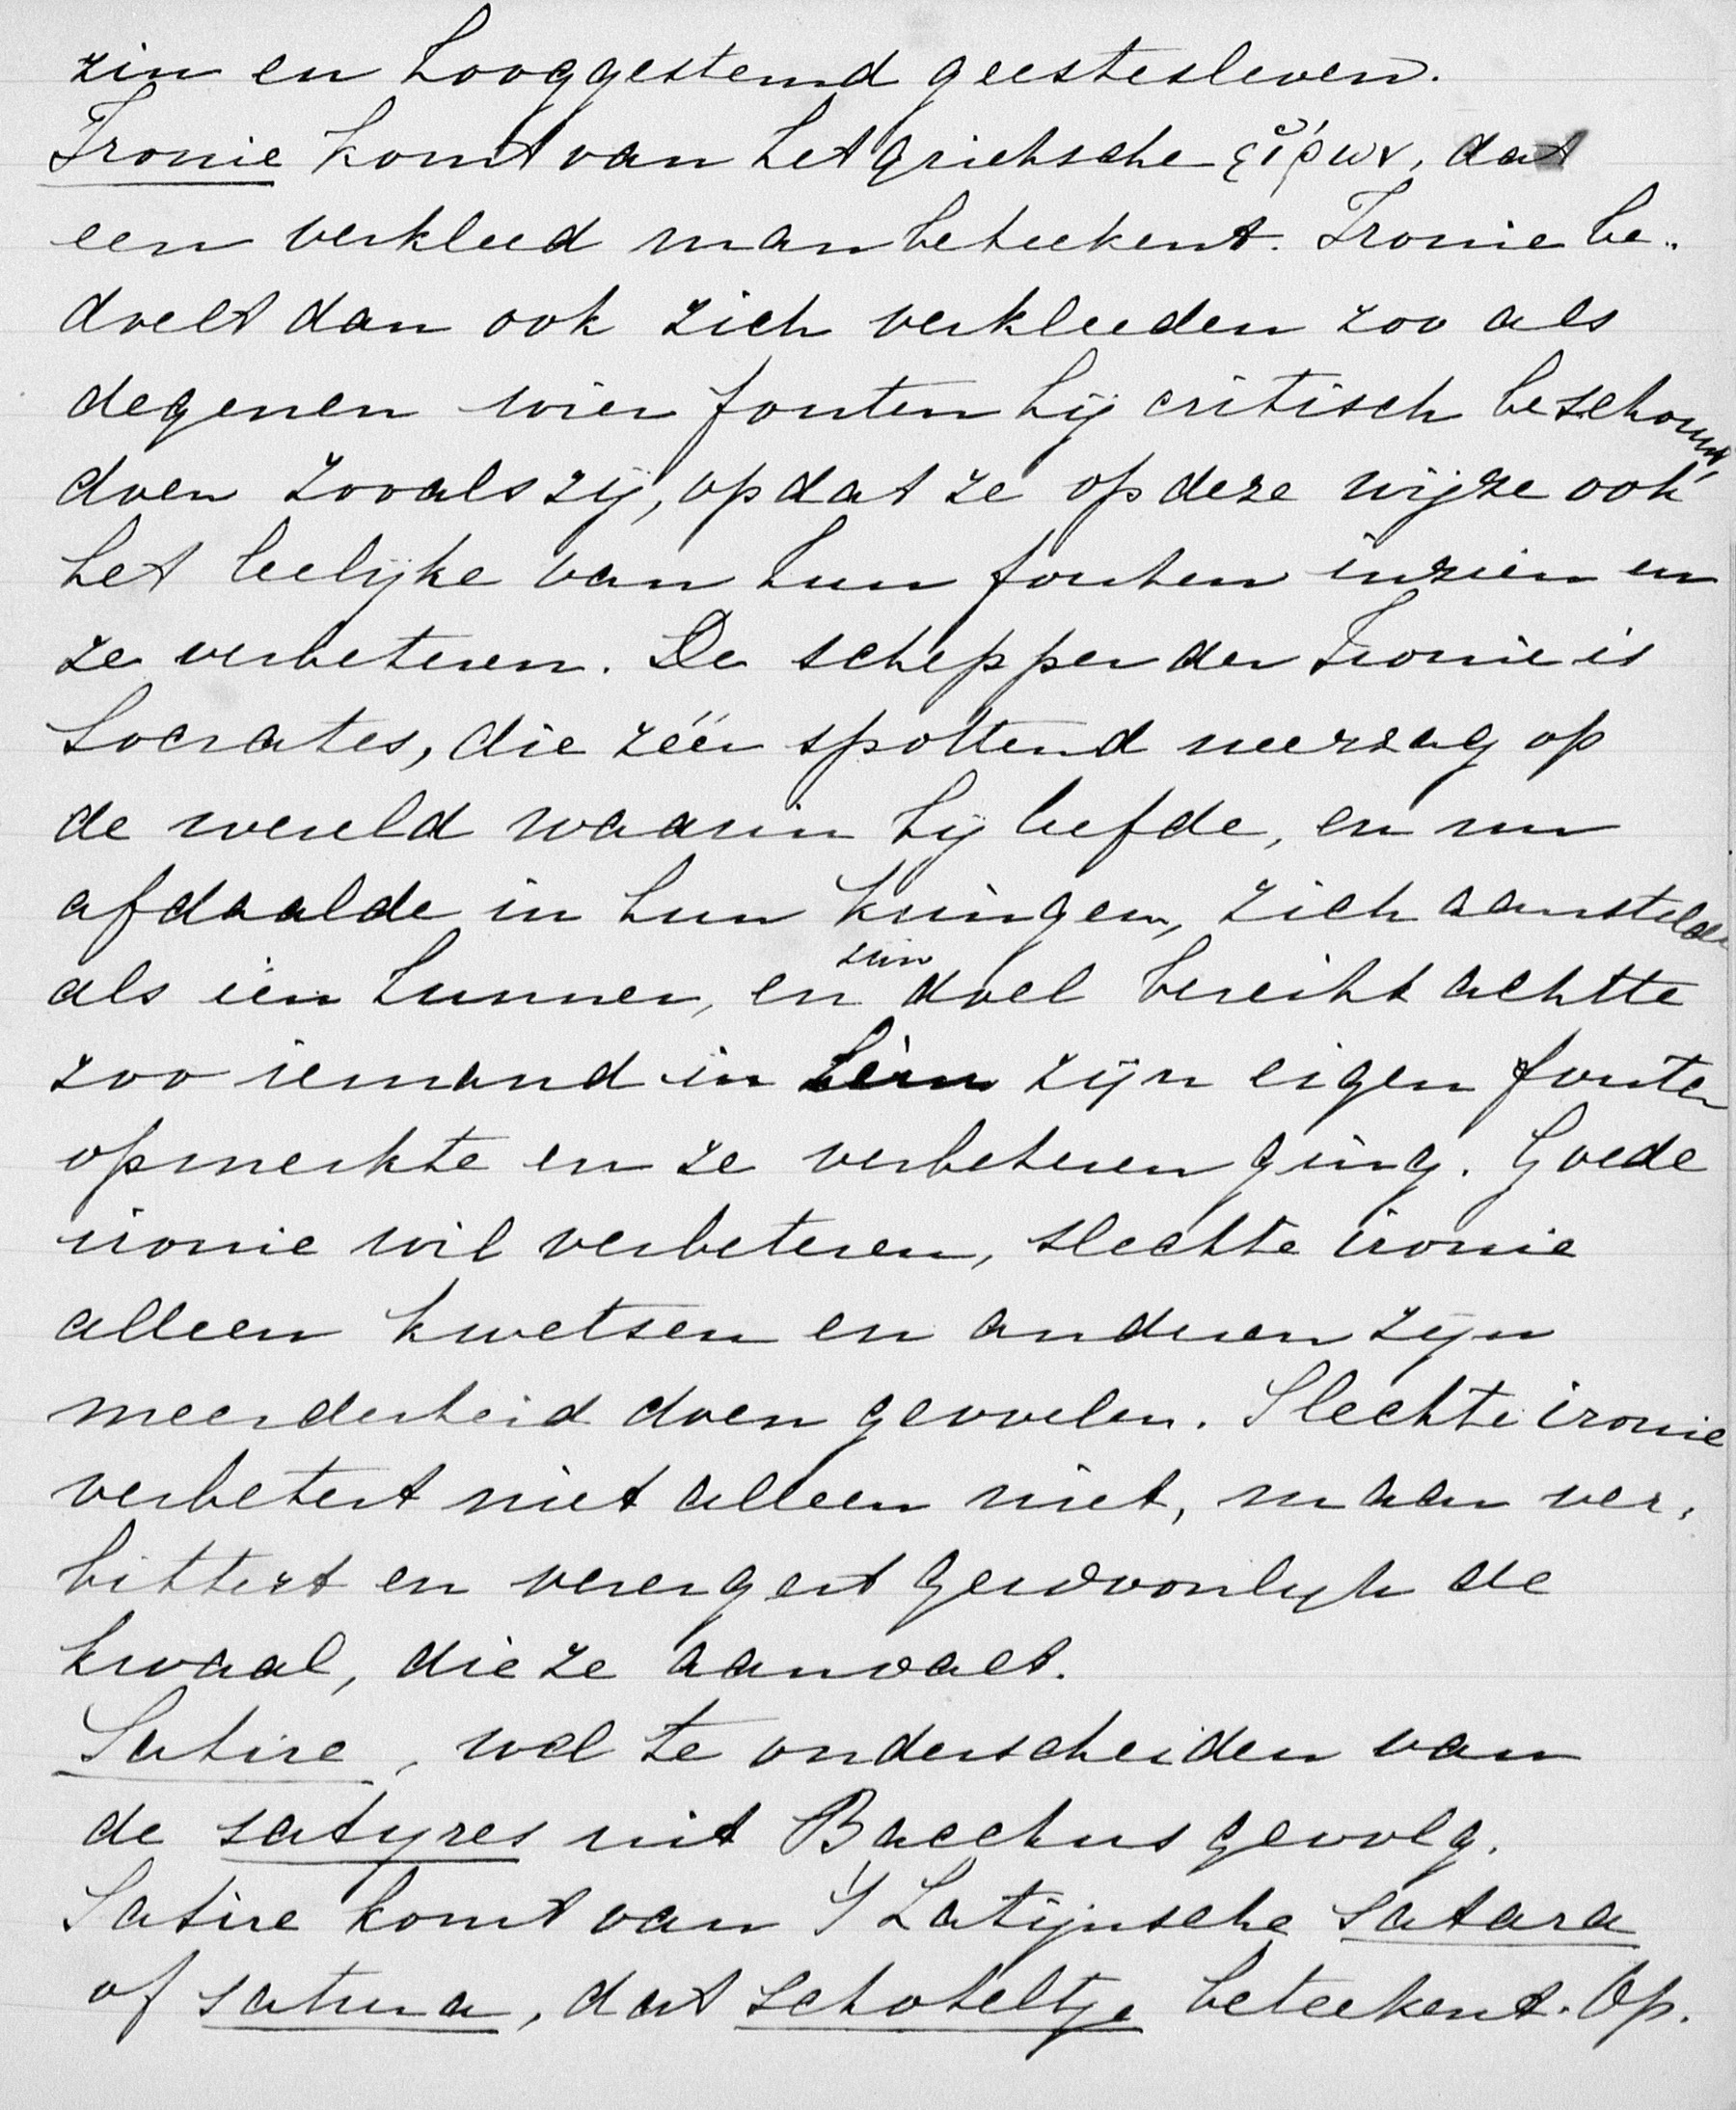 zin en hooggestemd geestesleven.
Ironie komt van het grieksche εἴρων, dat
een verkleed man beteekent. Ironie be-
doelt dan ook zich verkleeden zoo als
degenen wier fouten hij critisch beschouwt,
doen zooals zij, opdat ze op deze wijze ook
het leelijke van hun fouten inzien en
ze verbeteren. De schepper der Ironie is
Socrates, die zéér spottend neerzag op
de wereld waarin hij leefde, en nu
afdaalde in hun kringen, zich aanstelde
als één hunner, en zijn doel bereikt achtte
zoo iemand in hèm zijn eigen fouten
opmerkte en ze verbeteren ging. Goede
ironie wil verbeteren, slechte ironie
alleen kwetsen en anderen zijn
meerderheid doen gevoelen. Slechte ironie
verbetert niet alleen niet, maar ver-
bittert en verergert gewoonlijk de
kwaal, die ze aanvalt.
Satire, wel te onderscheiden van
de satyres uit Bacchus gevolg.
Satire komt van 't Latijnsche satara
of satura, dat schoteltje beteekent. Op.